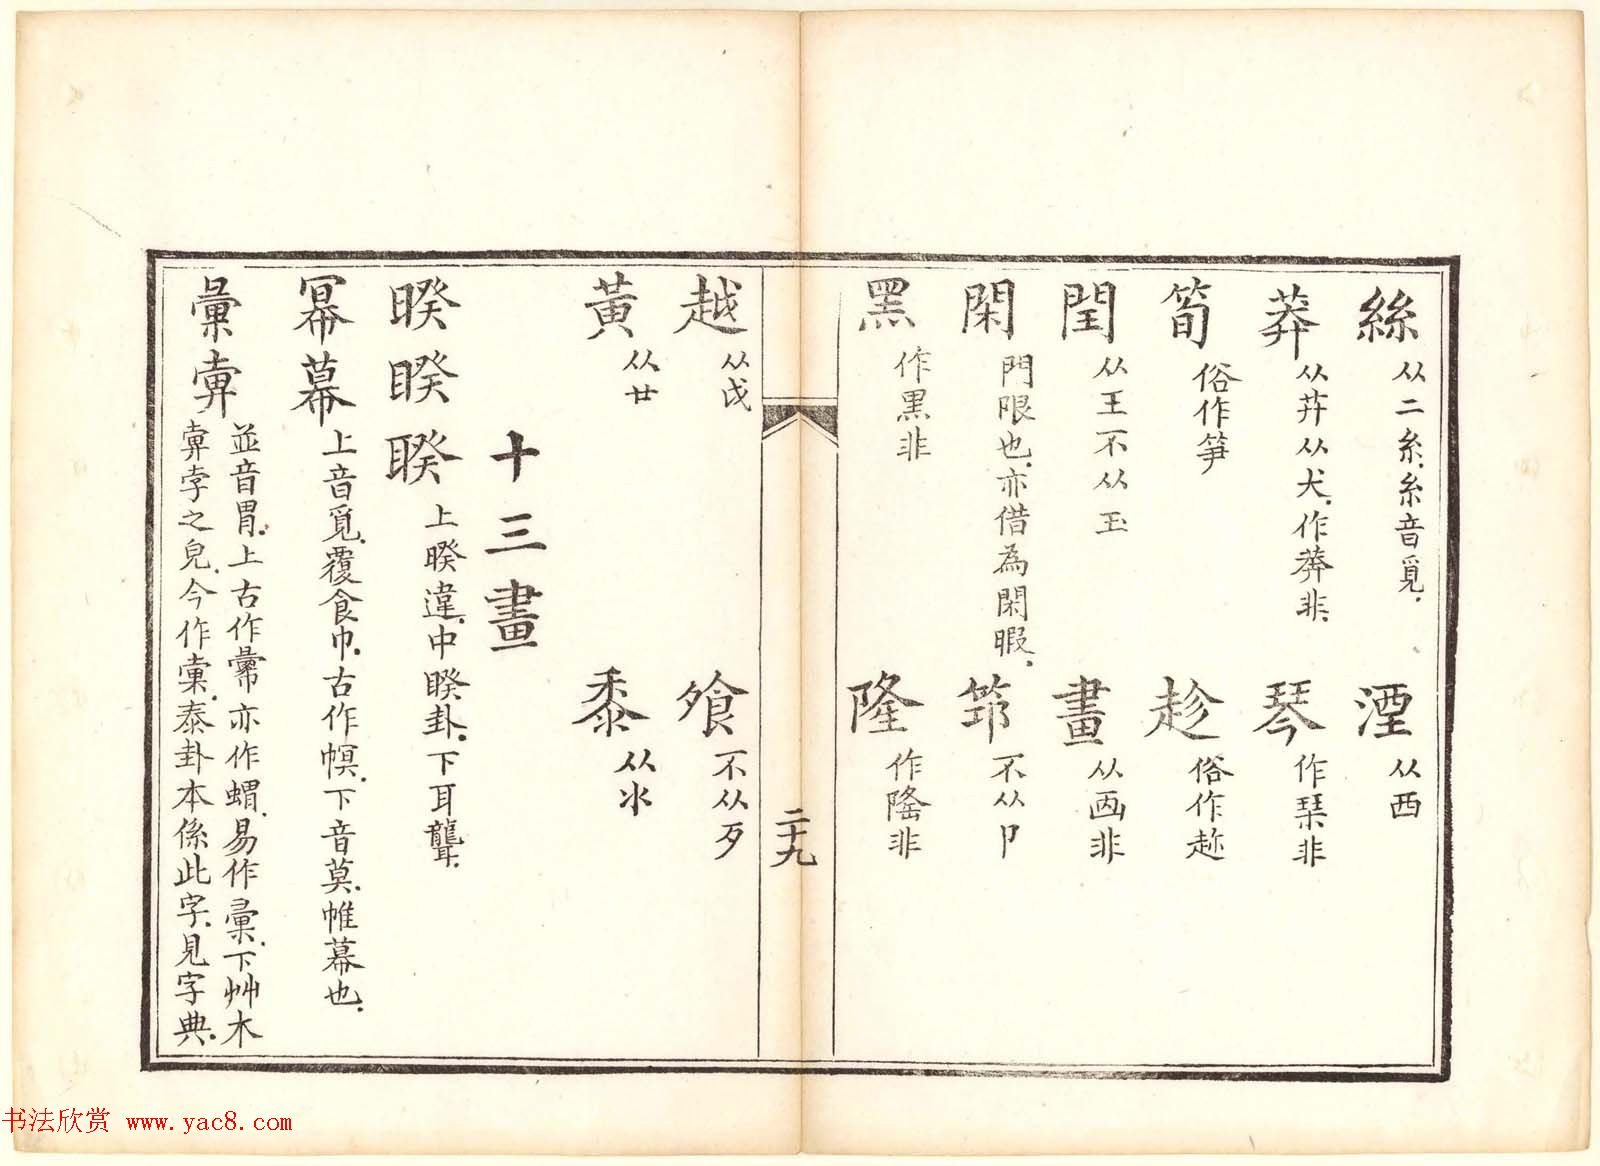 絲 从二糸糸音覓
湮 从西
莽 从茻从犬作莾非
琴 作栞非
筍 俗作笋
趁 俗作趂
閏 从王不从玉
畫 从靣非
閑 門限也亦借為閑暇
筇 不从卩
黑 作黒非
隆 作隆非
二十九
越 从戉
飧 不从歹
黃 从廿
黍 从氺
十三畫
睽睽睽 上睽違中睽卦下耳聾
冪幕 上音覓覆食巾古作幎下音莫帷幕也
彙 並音胃上古作亦作蝟易作彙下艸木
孛之皃今作彙泰卦本係此字見字典
书法欣赏 www.yac8.com